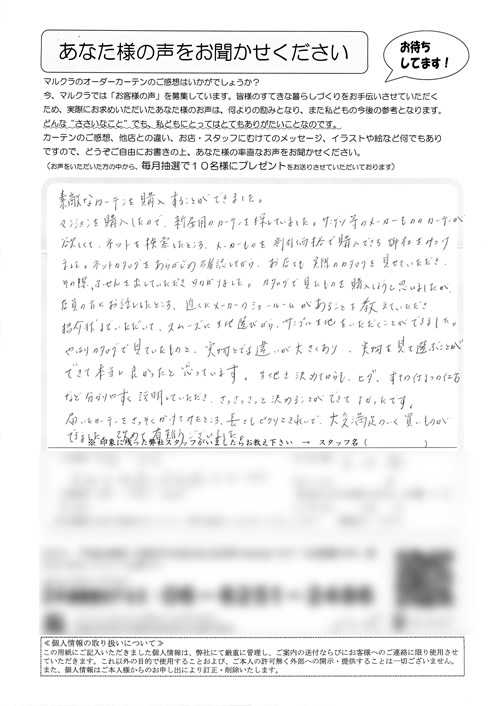 あなた様の声をお聞かせください
お待ち
してます!
マルクラのオーダーカーテンのご感想はいかがでしょうか?
今、マルクラでは「お客様の声」を募集しています。皆様のすてきな暮らしづくりをお手伝いさせていただく
ため、実際にお求めいただいたあなた様のお声は、何よりの励みとなり、また私どもの今後の参考となります。
どんな“ささいなこと”でも、私どもにとってはとてもありがたいことなのです。
カーテンのご感想、他店との違い、お店・スタッフにむけてのメッセージ、イラストや絵など何でもあり
ですので、どうぞご自由にお書きの上、あなた様の率直なお声をお聞かせください。
(お声をいただいた方の中から、毎月抽選で10名様にプレゼントをお送りさせていただいております)
素敵なカーテンを購入することができました。
マンションを購入したので、新居用のカーテンを探していました。サンゲツ等のメーカーもののカーテンが
欲しくて、ネットを検索したところ、メーカーものを割引価格で購入できる御社をみつけ
ました。ネットカタログをあらかじめ確認してから、お店でも実際のカタログを見せていただき、
その際、ふせんを出していただき助かりました。カタログで見たものを購入しようと思いましたが、
店員の方にお話ししたところ、近くにメーカーのショールームがあることを教えていただき
紹介状まていただいて、スムーズに生地選びがり、サンプル生地をいただくことができました。
やはりカタログで見ていたものと、実物とでは違いが大きくあり、実物を見て選ぶことが
できて本当に良かったと思っています。生地を決めてからも、ヒダ、すその仕方
など分かりやすく説明していただき、さっさっと決めることができてよかったです。
届いたカーテンをさっそくかけてみたところ、長さもピッタリときれいで、大変満足のいく買いものが
できました。改めて有難うございました。
※印象に残った弊社スタッフがいましたらお教え下さい → スタッフ名( )
06-6251-2486
≪個人情報の取り扱いについて≫
この用紙にご記入いただきました個人情報は、弊社にて厳重に管理し、ご案内の送付ならびにお客様へのご連絡に限り使用させ
ていただきます。これ以外の目的で使用することおよび、ご本人の許可無く外部への開示・提供することは一切ございません。
また、個人情報はご本人様からのお申し出により訂正・削除いたします。